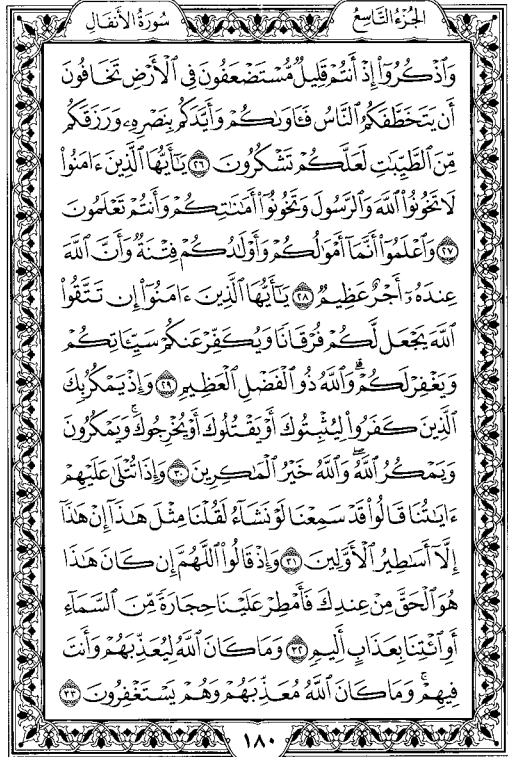 الجزء التاسع
سورة الأنفال
وَاذْكُرُوا إِذْ أَنتُمْ قَلِيلٌ مُّسْتَضْعَفُونَ فِي الْأَرْضِ تَخَافُونَ
أَن يَتَخَطَّفَكُمُ النَّاسُ فَـَٔاوَىٰكُمْ وَأَيَّدَكُم بِنَصْرِهِۦ وَرَزَقَكُم
مِّنَ الطَّيِّبَٰتِ لَعَلَّكُمْ تَشْكُرُونَ ٢٦ يَٰٓأَيُّهَا الَّذِينَ ءَامَنُوا
لَا تَخُونُوا اللَّهَ وَالرَّسُولَ وَتَخُونُوٓا أَمَٰنَٰتِكُمْ وَأَنتُمْ تَعْلَمُونَ
٢٧ وَاعْلَمُوٓا أَنَّمَآ أَمْوَٰلُكُمْ وَأَوْلَٰدُكُمْ فِتْنَةٌ وَأَنَّ اللَّهَ
عِندَهُۥٓ أَجْرٌ عَظِيمٌ ٢٨ يَٰٓأَيُّهَا الَّذِينَ ءَامَنُوٓا إِن تَتَّقُوا
اللَّهَ يَجْعَل لَّكُمْ فُرْقَانًا وَيُكَفِّرْ عَنكُمْ سَيِّـَٔاتِكُمْ
وَيَغْفِرْ لَكُمْ ۗ وَاللَّهُ ذُو الْفَضْلِ الْعَظِيمِ ٢٩ وَإِذْ يَمْكُرُ بِكَ
الَّذِينَ كَفَرُوا لِيُثْبِتُوكَ أَوْ يَقْتُلُوكَ أَوْ يُخْرِجُوكَ ۚ وَيَمْكُرُونَ
وَيَمْكُرُ اللَّهُ ۖ وَاللَّهُ خَيْرُ الْمَٰكِرِينَ ٣٠ وَإِذَا تُتْلَىٰ عَلَيْهِمْ
ءَايَٰتُنَا قَالُوا قَدْ سَمِعْنَا لَوْ نَشَآءُ لَقُلْنَا مِثْلَ هَٰذَآ إِنْ هَٰذَآ
إِلَّآ أَسَٰطِيرُ الْأَوَّلِينَ ٣١ وَإِذْ قَالُوا اللَّهُمَّ إِن كَانَ هَٰذَا
هُوَ الْحَقَّ مِنْ عِندِكَ فَأَمْطِرْ عَلَيْنَا حِجَارَةً مِّنَ السَّمَآءِ
أَوِ ائْتِنَا بِعَذَابٍ أَلِيمٍ ٣٢ وَمَا كَانَ اللَّهُ لِيُعَذِّبَهُمْ وَأَنتَ
فِيهِمْ ۚ وَمَا كَانَ اللَّهُ مُعَذِّبَهُمْ وَهُمْ يَسْتَغْفِرُونَ ٣٣
١٨٠